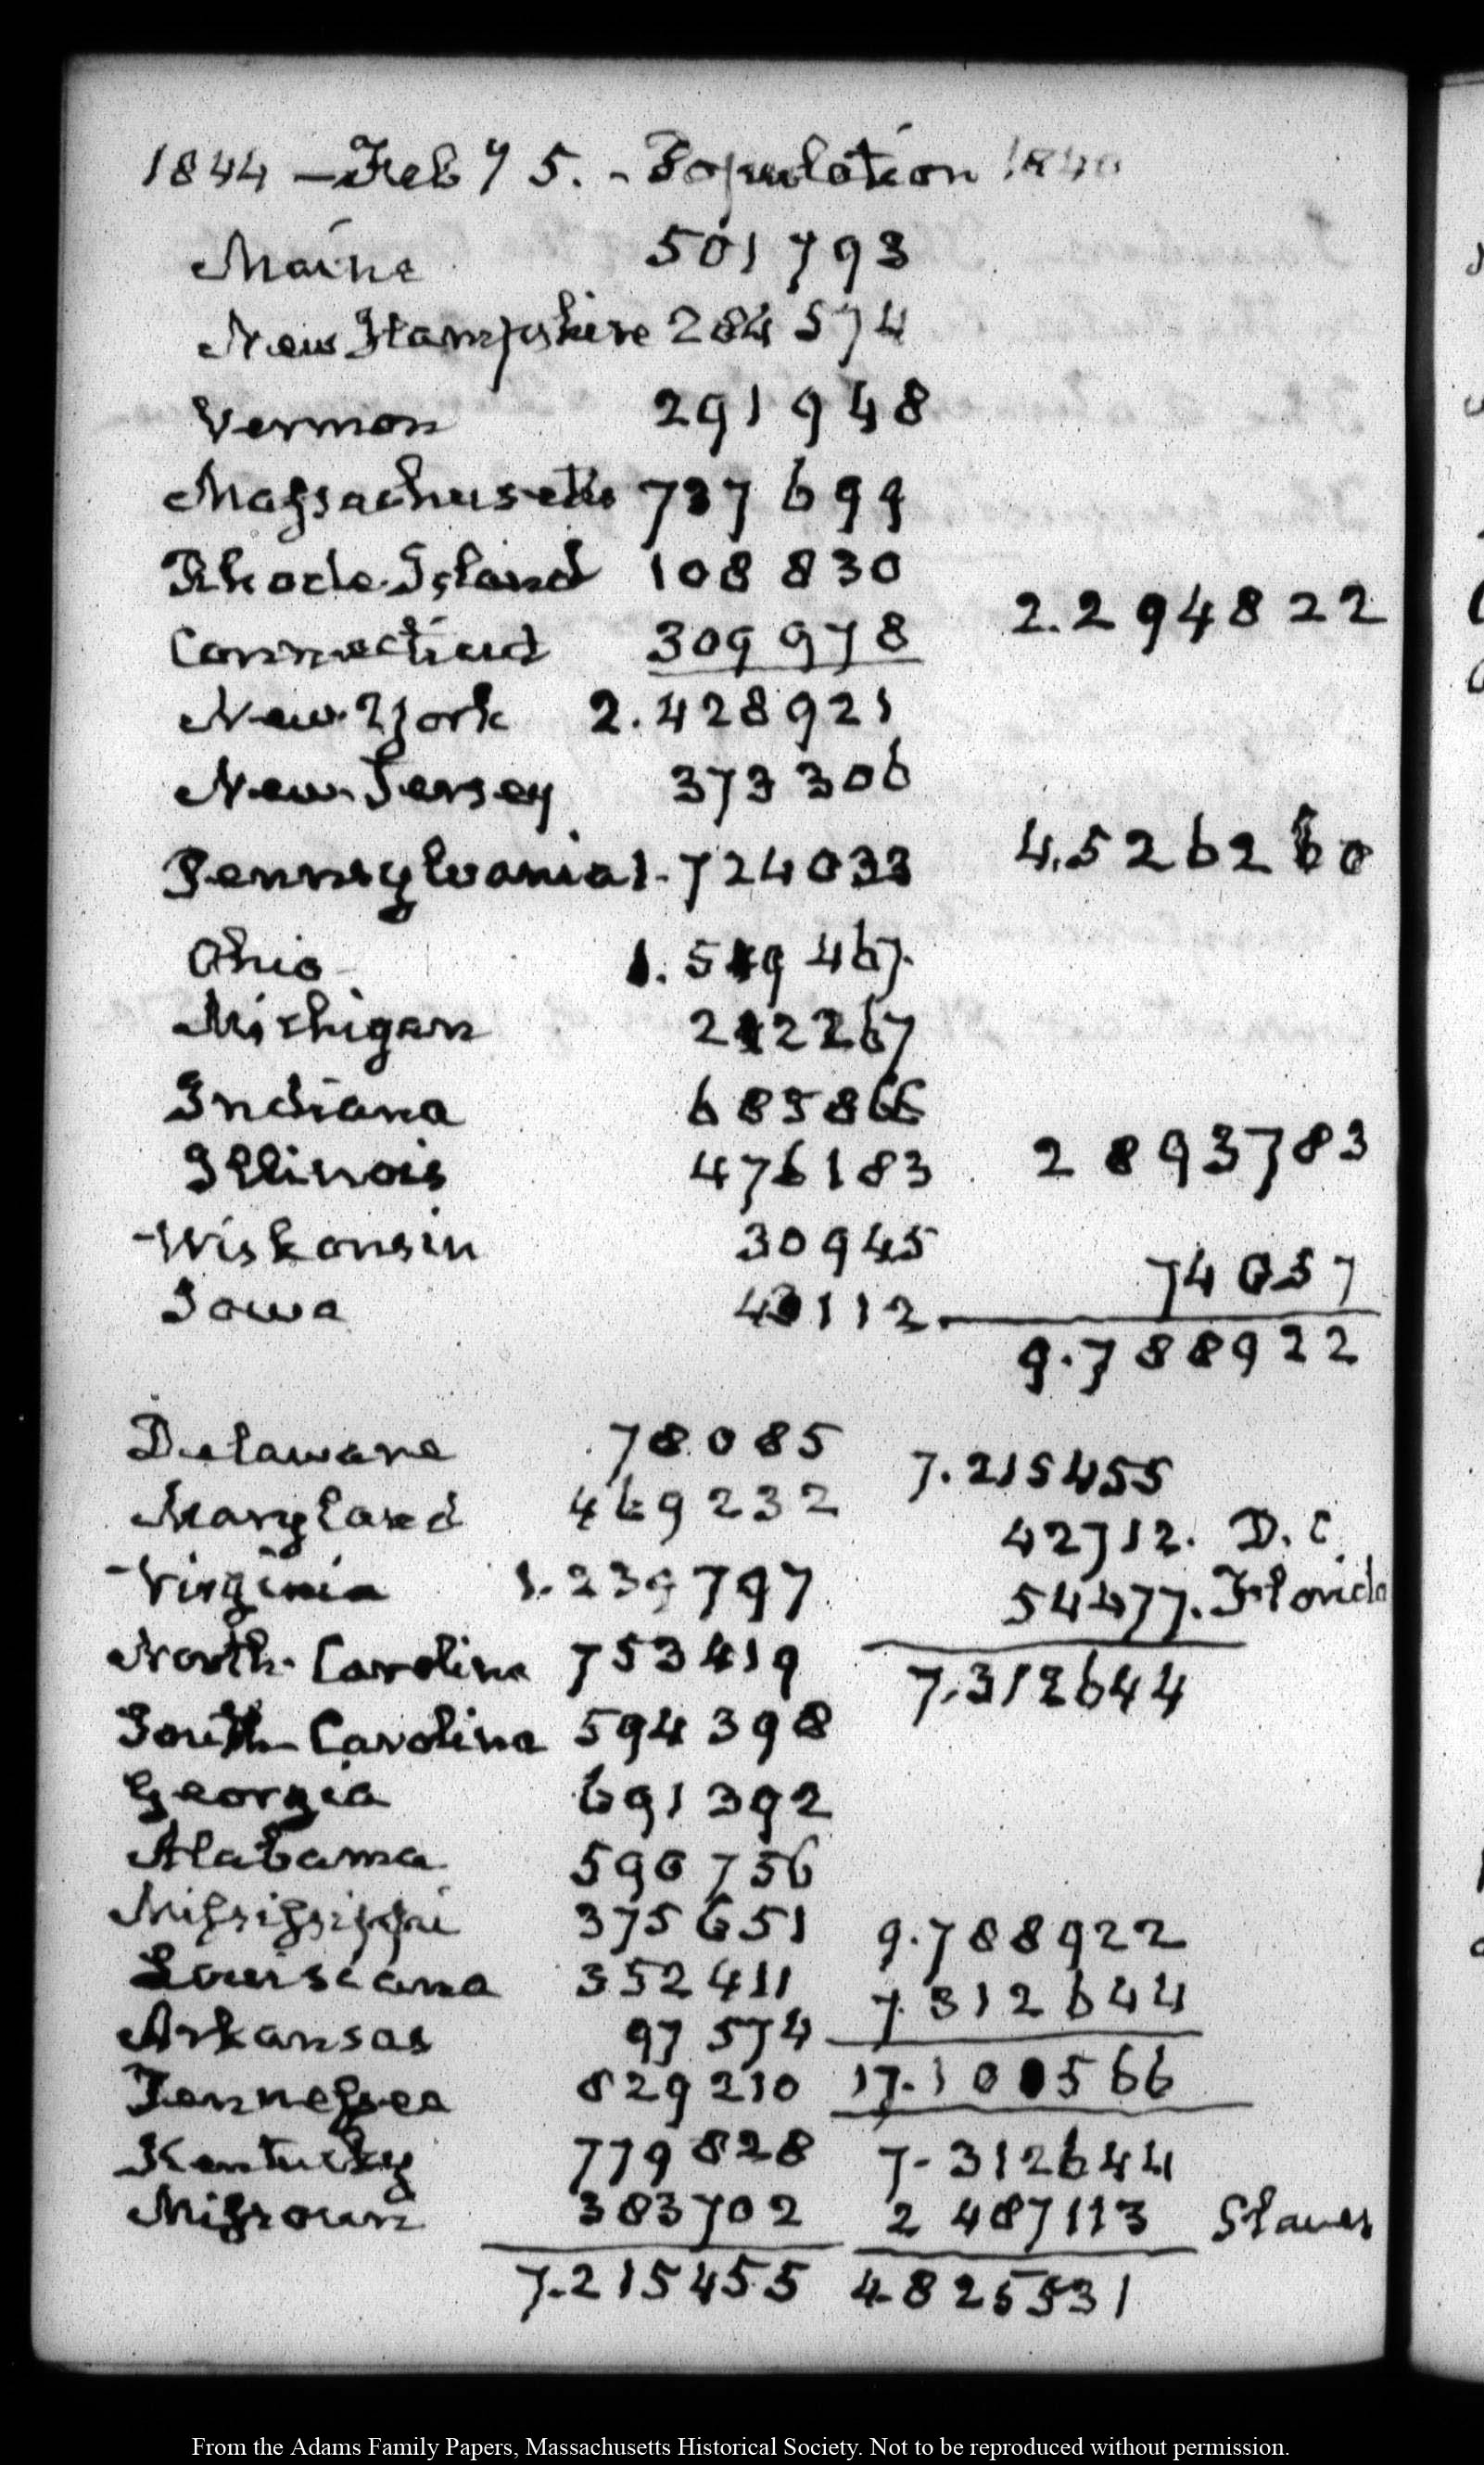 1844 – Feby 5. - Population 1840
Maine 501793
New Hampshire 284574
Vermon 291948
Massachusetts 737699
Rhode-Island 108830
Connecticut 309978 2.294822
New-York 2.428921
New-Jersey 373306
Pennsylvania 1.724033 4.526260
Ohio 1.519467.
Michigan 212267
Indiana 685866
Illinois 476183 2893783
Wiskonsin 30945
Iowa 43112. 74057
9.788922
Delaware 78085 7.215455
Maryland 469232 42712. D.C.
Virginia 1.239797 54477. Florida
North-Carolina 753419 7.312644
South-Carolina 594398
Georgia 691392
Alabama 590756
Mississippi 375651 9.788922
Louisiana 352411 7.312644
Arkansas 97574
Tennessee 829210 17.101566
Kentucky 779828 7.312644
Missouri 383702 2487113 Slaves
7.215455 4.825531
From the Adams Family Papers, Massachusetts Historical Society. Not to be reproduced without permission.